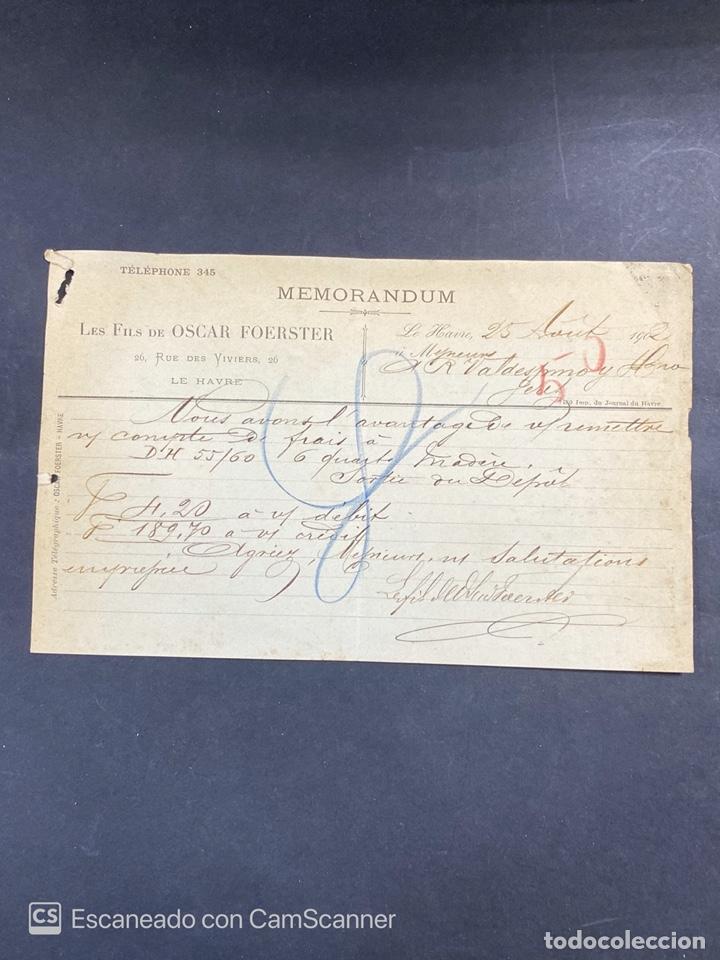 TÉLÉPHONE 345
MEMORANDUM
LES FILS DE OSCAR FOERSTER
26, RUE DES VIVIERS, 26
LE HAVRE
Le Havre, 25 Août 190
à Messieurs
R Valdespino y Hno
Jerez
50
Imp. du Journal du Havre
Adresse Télégraphique: OSCAR FOERSTER - HAVRE
Nous avons l'avantage de v/ remettre
v/ compte de frais à
D'H 55/60 6 quarts Madère.
Sortie du Dépôt
F 4,20 à v/ débit
F 189,70 à v/ crédit
Agréez, Messieurs, n/ salutations
empressées
Les fils de Oscar Foerster
CS Escaneado con CamScanner
todocoleccion